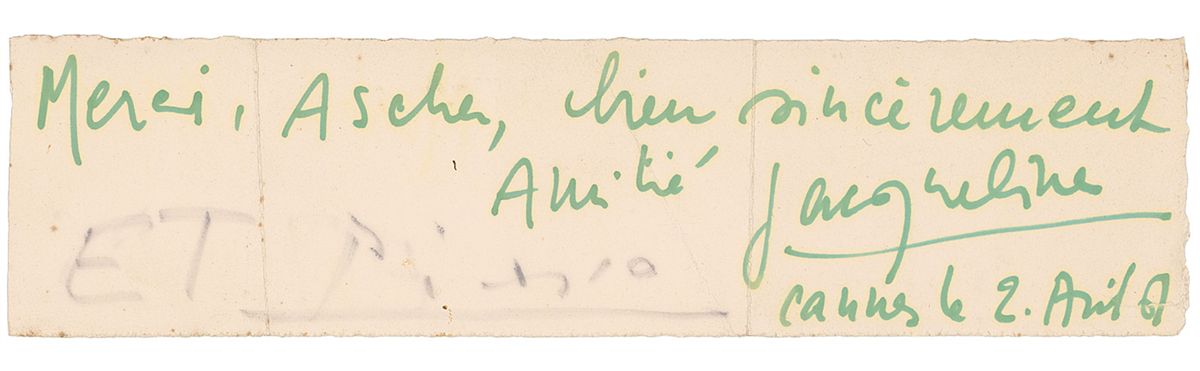 Merci, Ascher, bien sincèrement
Amitié Jacqueline
ET Picasso
Cannes le 2. Avril 61